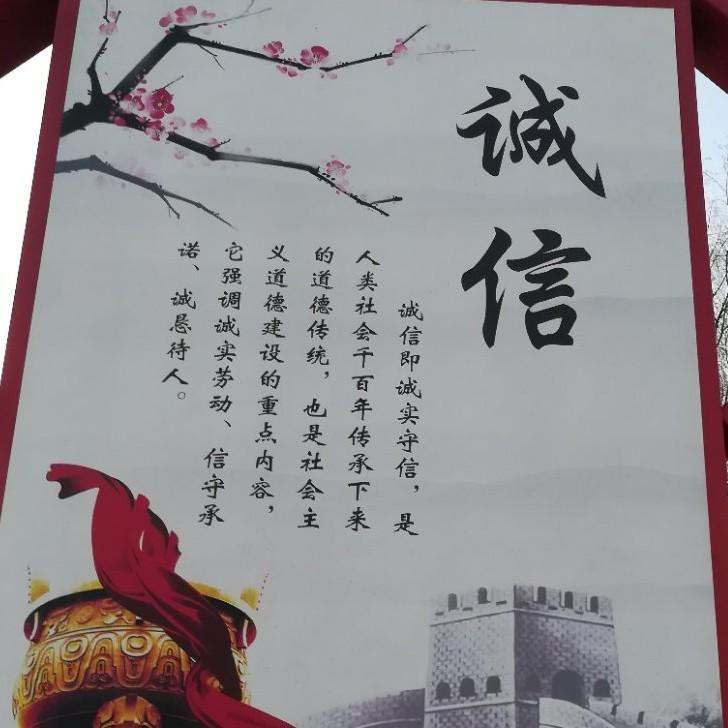 诚信
诚信即诚实守信，是
人类社会千百年传承下来
的道德传统，也是社会主
义道德建设的重点内容，
它强调诚实劳动、信守承
诺、诚恳待人。